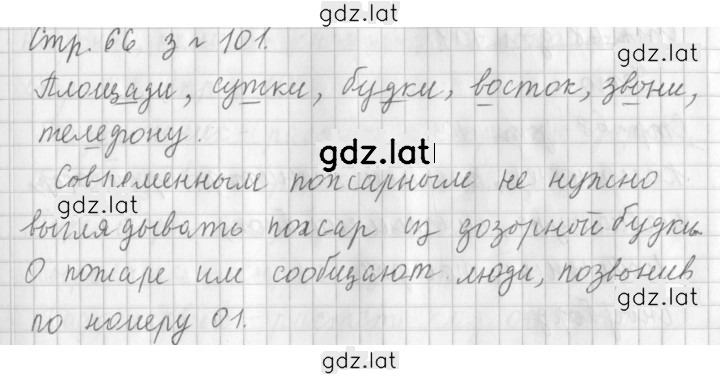 gdz.lat
Стр. 66 з ~ 101.
gdz.lat
Площади, сутки, будки, восток, звони,
телефону.
gdz.lat
Современным пожарным не нужно
gdz.lat
выглядывать пожар из дозорной будки.
О пожаре им сообщают люди, позвонив
gdz.lat
по номеру 01.
gdz.lat